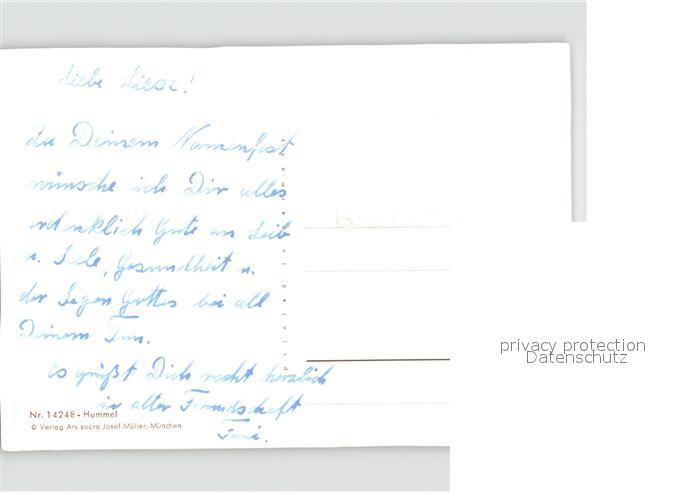 Liebe Liese!
Zu Deinem Namensfest
wünsche ich Dir alles
erdenklich Gute an Leib
u. Sele, Gesundheit u.
der Segen Gottes bei all
Deinem Tun.
Es grüßt Dich recht herzlich
in alter Freundschaft
Nr. 14248 - Hummel
© Verlag Ars sacra Josef Müller, München
printed in germany
privacy protection
Datenschutz